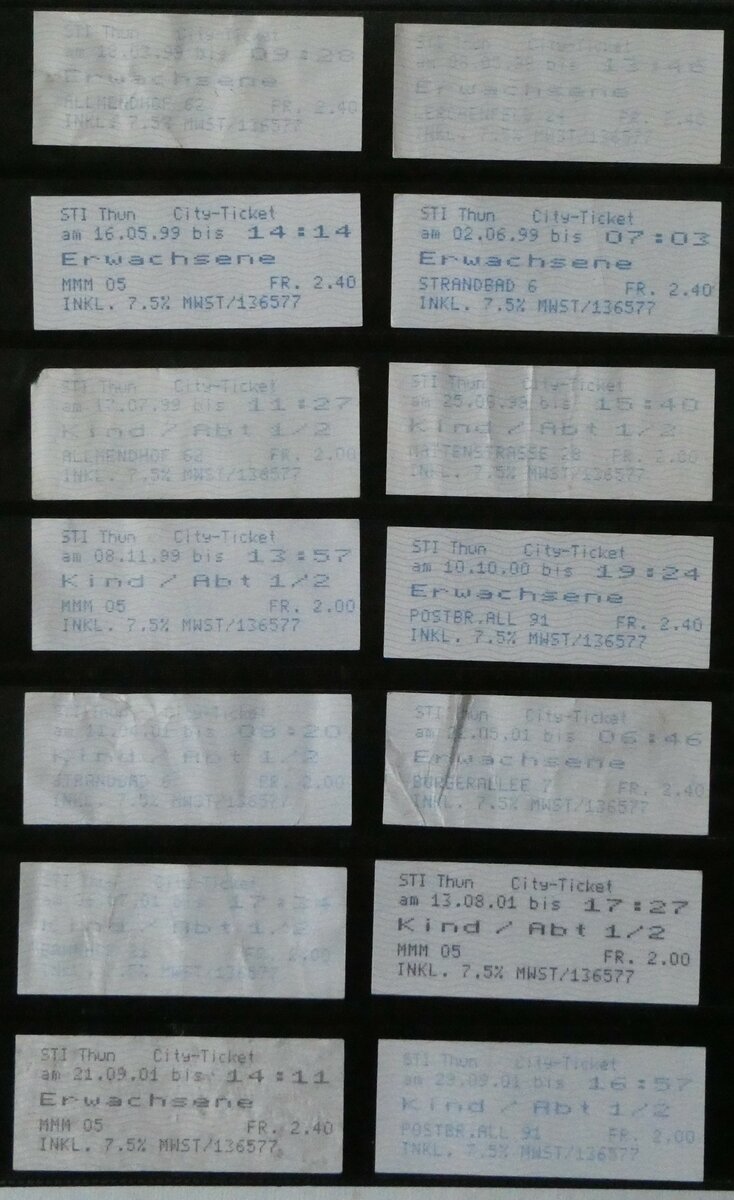 STI Thun City-Ticket
am 18.03.99 bis 09:28
Erwachsene
ALLMENDHOF 62 FR. 2.40
INKL. 7.5% MWST/136577
STI Thun City-Ticket
am 99 bis 13:46
Erwachsene
LERCHENFELD 24 FR. 2.40
INKL. 7.5% MWST/136577
STI Thun City-Ticket
am 16.05.99 bis 14:14
Erwachsene
MMM 05 FR. 2.40
INKL. 7.5% MWST/136577
STI Thun City-Ticket
am 02.06.99 bis 07:03
Erwachsene
STRANDBAD 6 FR. 2.40
INKL. 7.5% MWST/136577
STI Thun City-Ticket
am 17.07.99 bis 11:27
Kind / Abt 1/2
ALLMENDHOF 62 FR. 2.00
INKL. 7.5% MWST/136577
STI Thun City-Ticket
am bis 15:40
Kind / Abt 1/2
MATTENSTRASSE 28 FR. 2.00
INKL. 7.5% MWST/136577
STI Thun City-Ticket
am 08.11.99 bis 13:57
Kind / Abt 1/2
MMM 05 FR. 2.00
INKL. 7.5% MWST/136577
STI Thun City-Ticket
am 10.10.00 bis 19:24
Erwachsene
POSTBR.ALL 91 FR. 2.40
INKL. 7.5% MWST/136577
STI Thun City-Ticket
am 11.04.01 bis 08:20
Kind / Abt 1/2
STRANDBAD 6 FR. 2.00
INKL. 7.5% MWST/136577
STI Thun City-Ticket
am bis 06:46
Erwachsene
BÜRGERALLEE 7 FR. 2.40
INKL. 7.5% MWST/136577
STI Thun City-Ticket
am bis 17:34
Kind / Abt 1/2
FR. 2.00
STI Thun City-Ticket
am 13.08.01 bis 17:27
Kind / Abt 1/2
MMM 05 FR. 2.00
INKL. 7.5% MWST/136577
STI Thun City-Ticket
am 21.09.01 bis 14:11
Erwachsene
MMM 05 FR. 2.40
INKL. 7.5% MWST/136577
STI Thun City-Ticket
am 29.09.01 bis 16:57
Kind / Abt 1/2
POSTBR.ALL 91 FR. 2.00
INKL. 7.5% MWST/136577